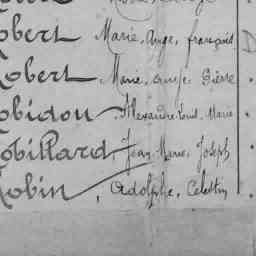 Robert Marie, Ange, françois D
Robert Marie, ange Pierre
Robidou, Alexandre Marie
Robillard, Jean, Marie, Joseph
Robin, Adolphe, Célestin